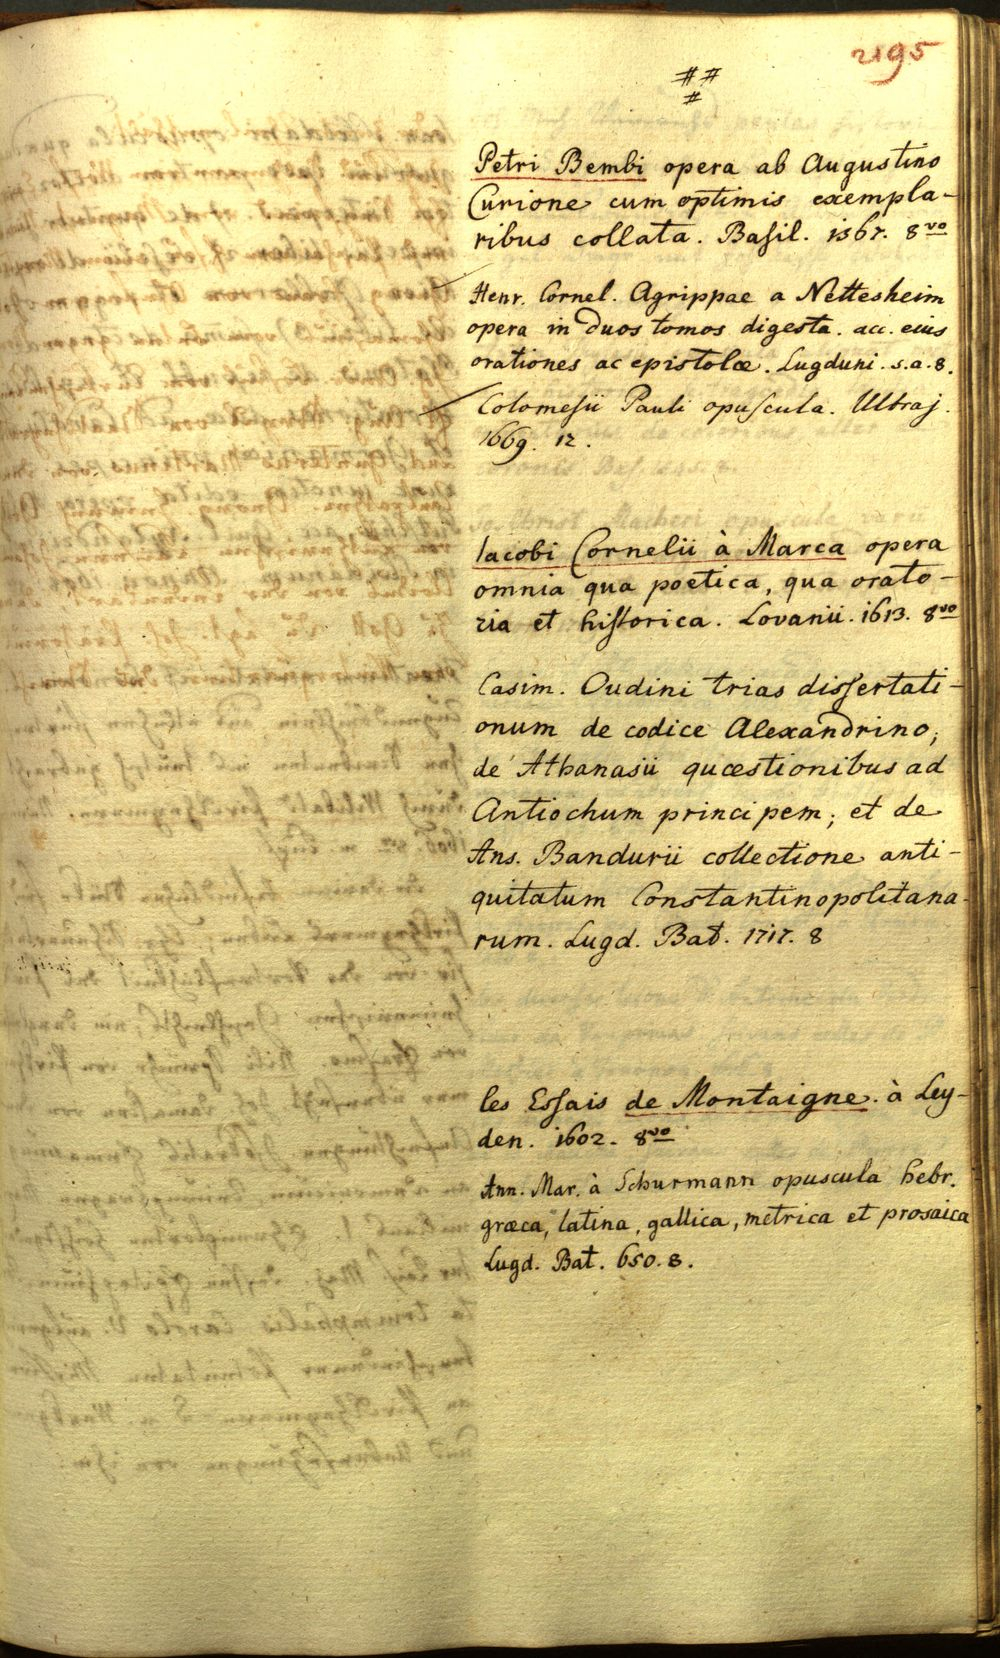 2195
# #
#
Petri Bembi opera ab Augustino
Curione cum optimis exempla-
ribus collata. Basil. 1567. 8vo
Henr. Cornel. Agrippae a Nettesheim
opera in duos tomos digesta. acc. eius
orationes ac epistolæ. Lugduni. s.a.8.
Colomesii Pauli opuscula. Ultraj.
1669. 12.
Iacobi Cornelii à Marca opera
omnia qua poetica, qua orato-
ria et historica. Lovanii. 1613. 8vo
Casim. Oudini trias dissertati-
onum de codice Alexandrino;
de Athanasii quæstionibus ad
Antiochum principem; et de
Ans. Bandurii collectione anti-
quitatum Constantinopolitana-
rum. Lugd. Bat. 1717. 8
les Essais de Montaigne. à Ley-
den. 1602. 8vo
Ann. Mar. à Schurmann opuscula hebr.
græca, latina, gallica, metrica et prosaica
Lugd. Bat. 650.8.